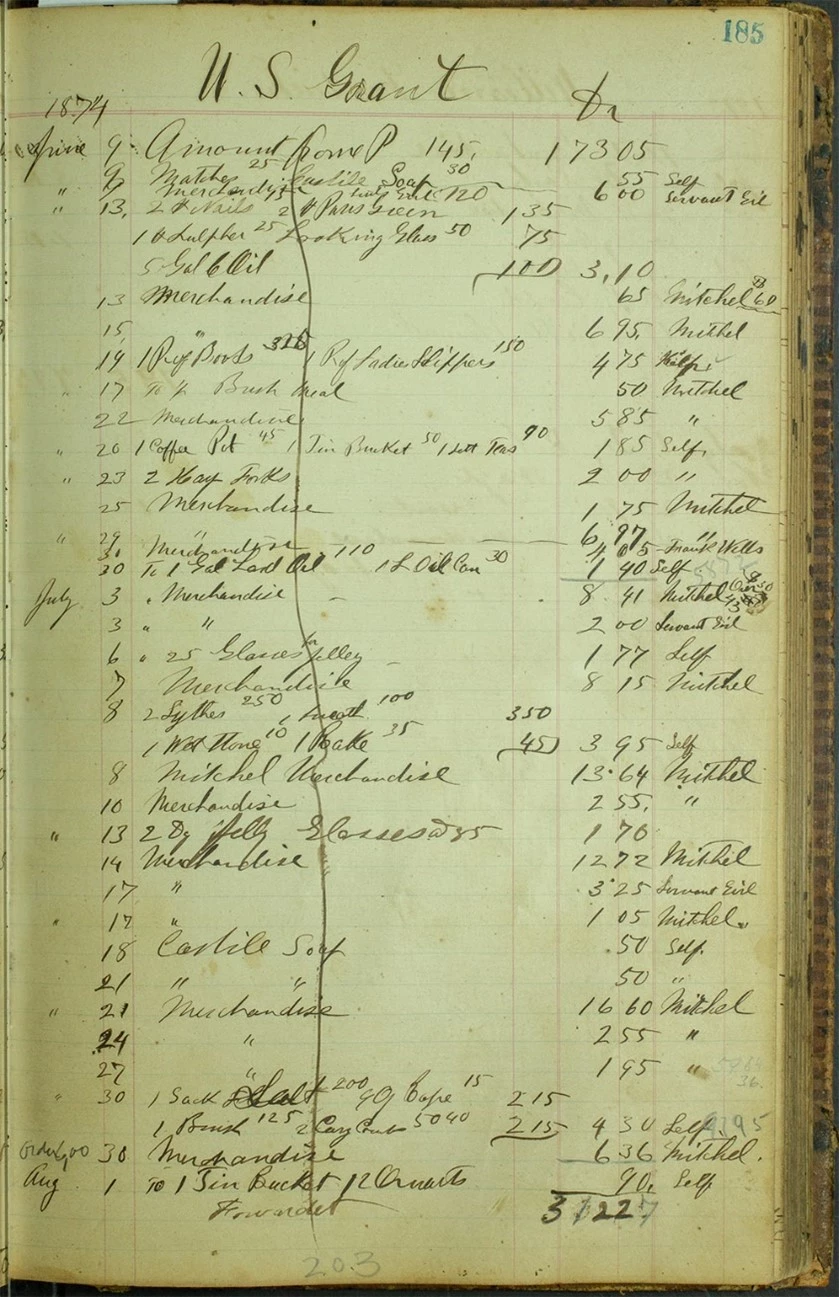 185
U. S. Grant
1874 Dr
June 9 Amount from P 145, 173 05
9 Matches 25 Castile Soap 30 55 Self
" 9 Merchandise 6 00 Servant Girl
" 13, 2 # Nails 2 # Paris Green 120 1 35
1 # Sulpher 25 Looking Glass 50 75
5 Gal C Oil 100 3,10
13 Merchandise 65 Mitchel 60
15, " 6 95, Mitchel
14 1 Pr Boots 325 1 Pr Ladies Slippers 150 4 75 Self
" 17 To Bush meal 50 Mitchel
22 Merchandise 5 85 "
" 20 1 Coffee Pot 45 1 Tin Bucket 50 1 Sett Teas 90 1 85 Self,
" 23 2 Hay Forks 2 00 "
25 Merchandise 1 75 Mitchel
" 29 " 6,97 "
30 Merchandise 4 05 Frank Wells
30 To 1 Gal Lard Oil 110 1 L Oil Can 30 1 40 Self
July 3 " Merchandise 8 41 Mitchel
3 " " 2 00 Servant Girl
6 " 25 Glasses for Jelley 1 77 Self
7 Merchandise 8 15 Mitchel
8 2 Sythes 250 1 Sneath 100 350
1 Wet Stone 10 1 Rake 35 45 3 95 Self
8 Mitchel Merchandise 13.64 Mitchel
10 Merchandise 2 55, "
" 13 2 Dz Jelly Glasses @ 85 1 70
14 Merchandise 12 72 Mitchel
17 " 3 25 Servant Girl
" 17 " 1 05 Mitchel
18 Castile Soap .50 Self.
21 " " 50 "
" 21 Merchandise 16 60 Mitchel
24 " 2 55 "
27 " 1 95 "
" 30 1 Sack Salt 200 Rope 15 2 15
1 Brush 125 2 Cury Combs 50 40 2 15 4 30 Self.
30 Merchandise 6 36 Mitchel.
Aug 1 To 1 Tin Bucket 12 Quarts 90, Self
Forwarded 3 1 22 7
203